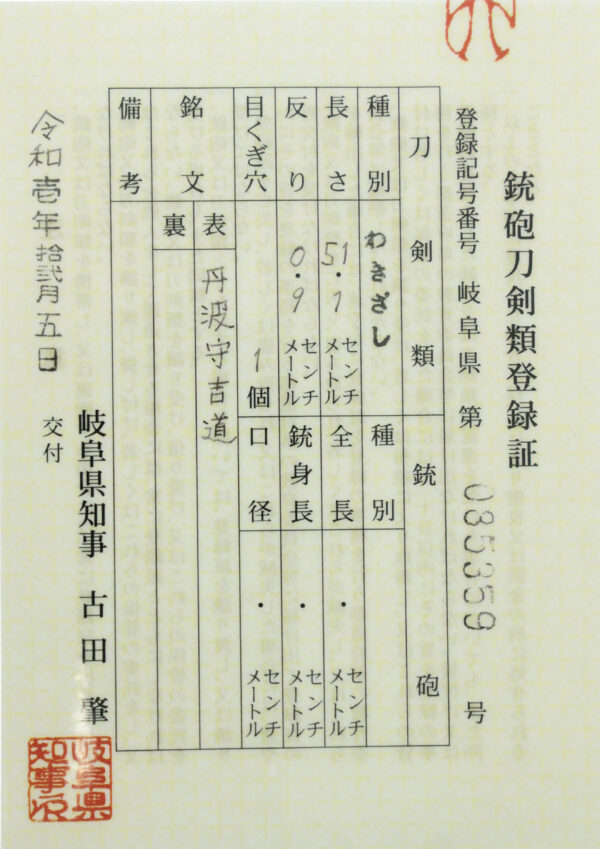 銃砲刀剣類登録証
登録記号番号 岐阜県 第 085359 号
刀剣類 銃砲
種別 わきざし 種別
長さ 51.1 センチメートル 全長 ・ センチメートル
反り 0.9 センチメートル 銃身長 ・ センチメートル
目くぎ穴 1個 口径 ・ センチメートル
銘文 表 丹波守吉道
裏
備考
岐阜県知事 古田 肇
令和壱年拾弐月五日 交付
岐阜県
知事之印